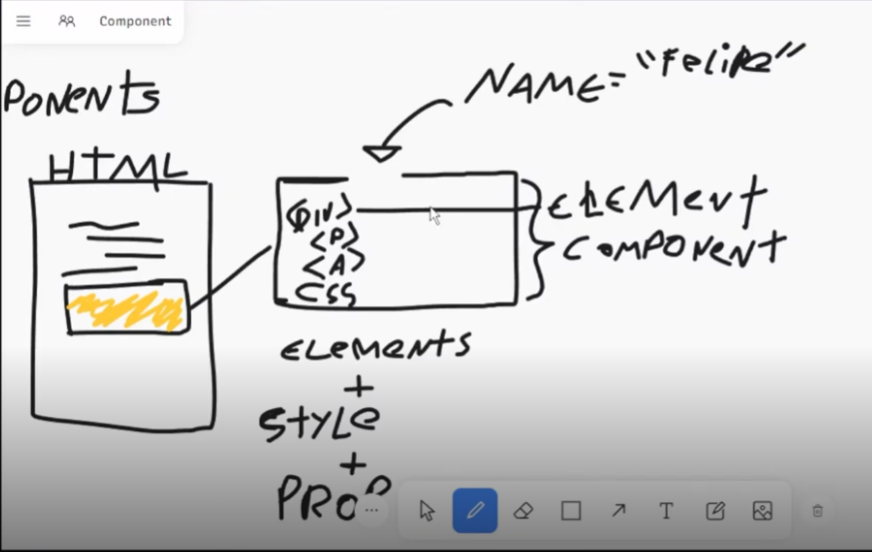 Component
PONENTS
HTML
NAME="Felipe"
<DIV>
<P>
<A>
CSS
ELEMENT
COMPONENT
ELEMENTS
+
STYLE
+
PROP
T